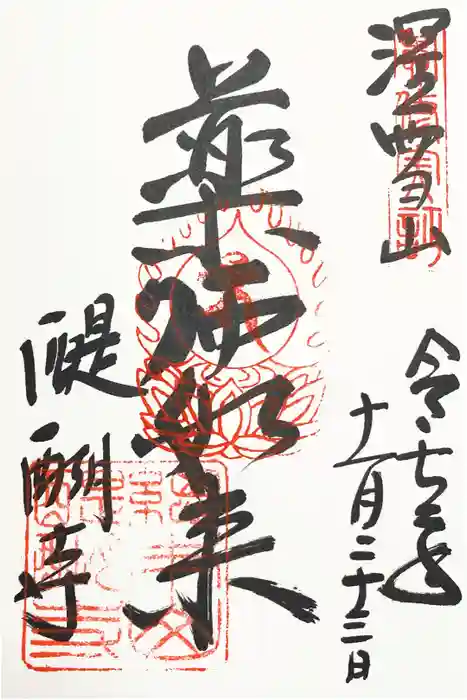 深雪山
令和七年
十一月二十三日
薬師如来
醍醐寺